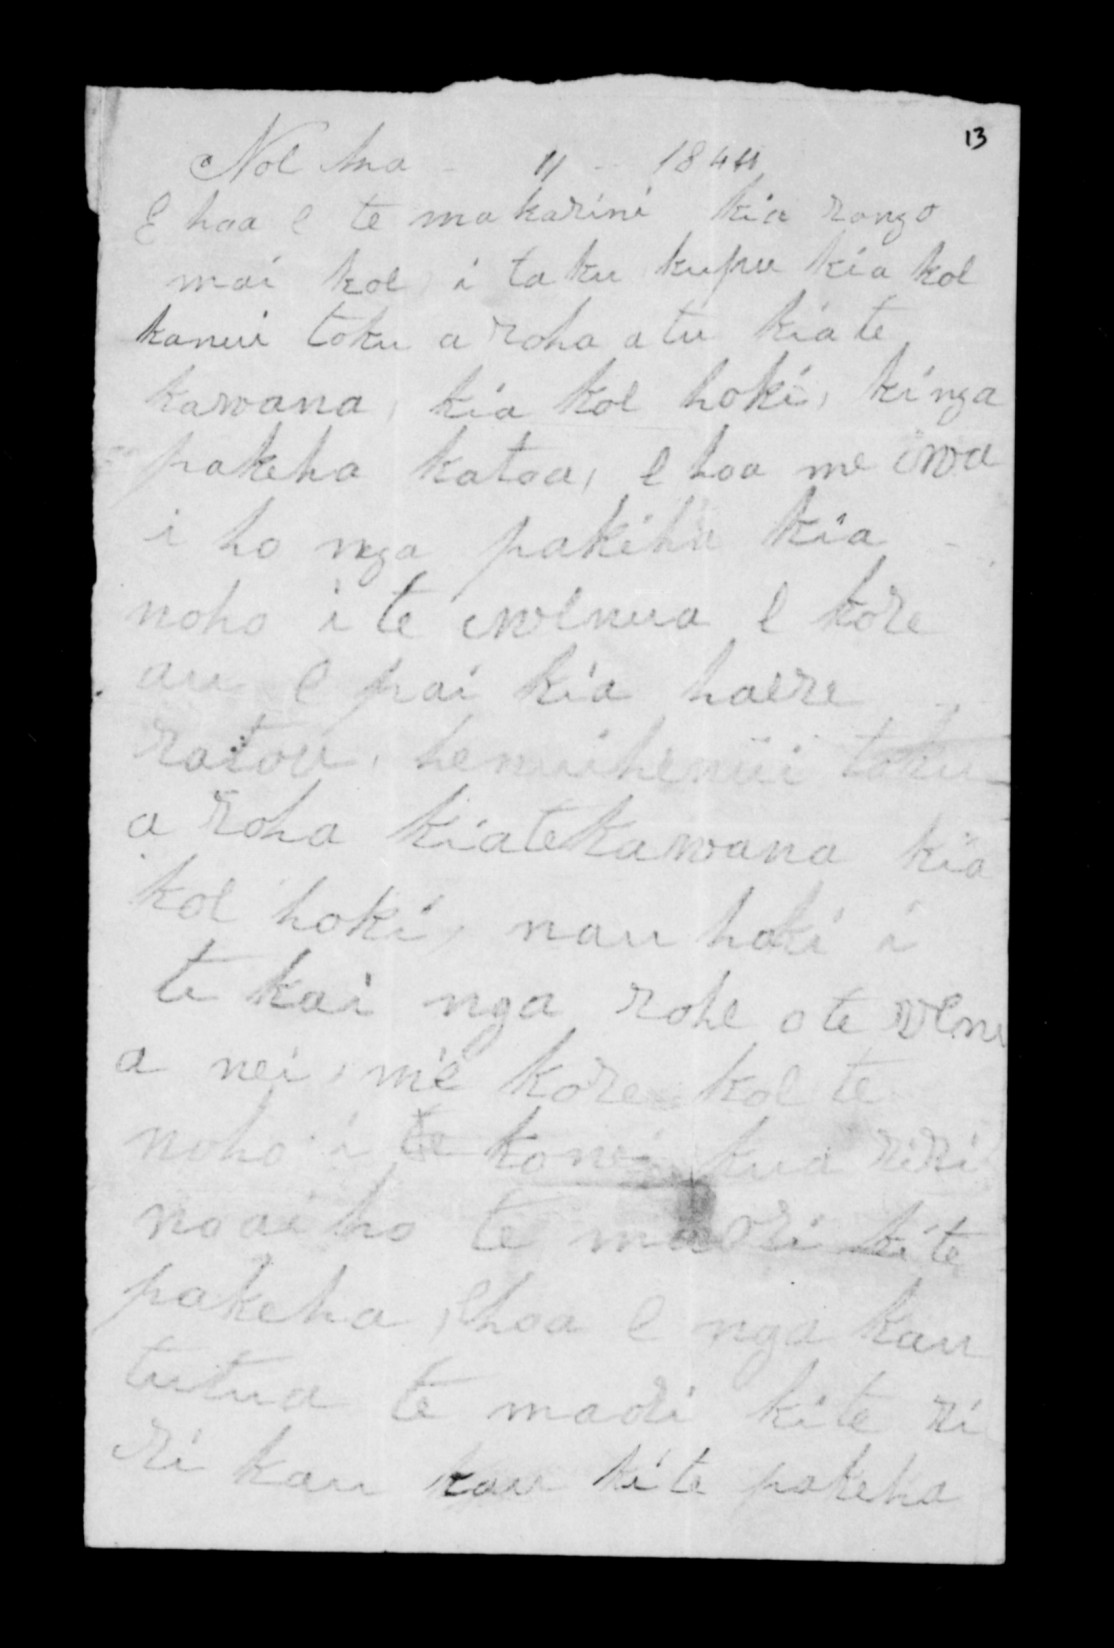 13
Noe ma - 11 - 1844
E hoa e te makarini kia rongo
mai koe i taku kupu kia koe
kanui toku a roha atu kiate
kawana, kia koe hoki, kinga
pakeha katoa, e hoa me waː
i ho nga pakiha kia -
noho i te wenua e kore
au e pai kia haere
ratou, henuihenui toku
a roha kiatekawana kia
koe hoki, nau hoki i
te kai nga rohe o te wenu
a nei, me kore koe te
noho i te konei kua riri
noaiho te maori kite
pakeha, ehoa e nga kau
tutua te maori kite ri
ri kau kau kite pakeha